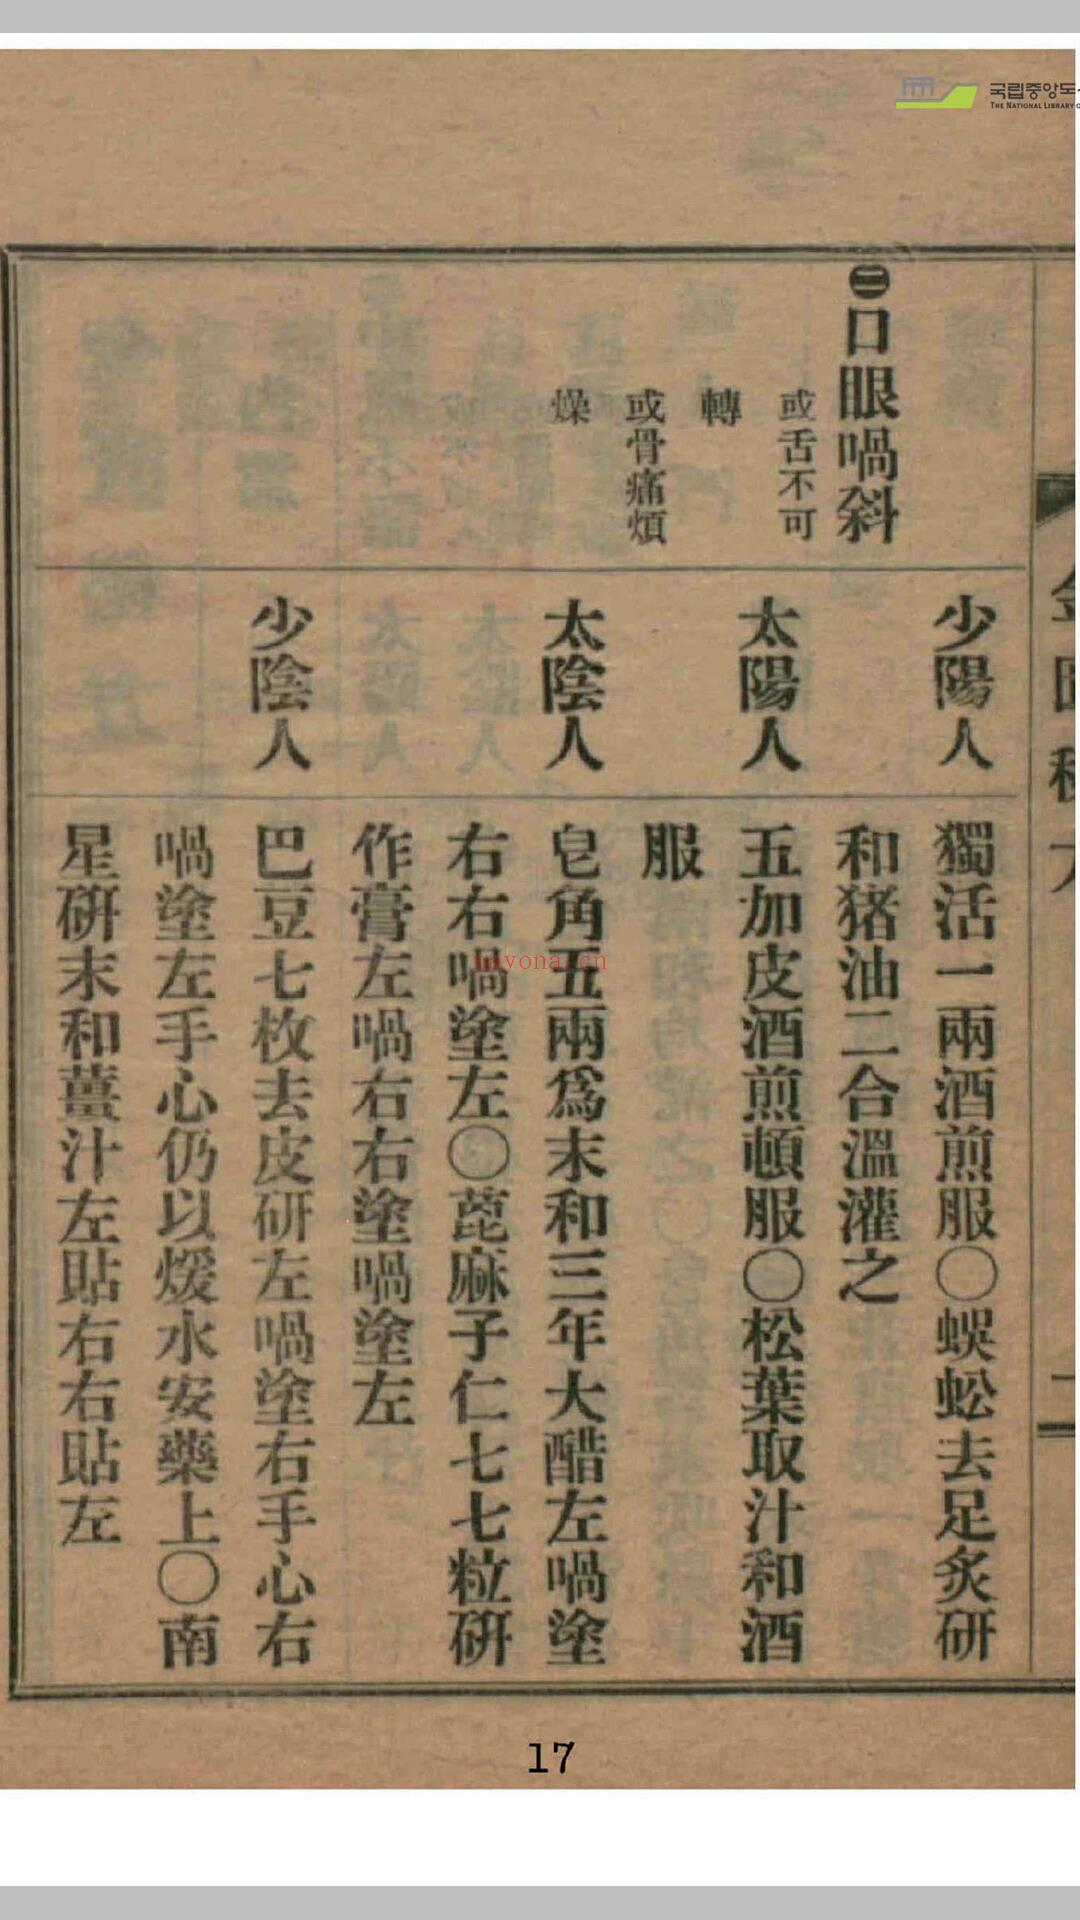 국립중앙도
THE NATIONAL LIBRARY O
二
少陽人
獨活一兩酒煎服〇蜈蚣去足炙研
㊁口眼喎斜
和猪油二合溫灌之
或舌不可
轉
太陽人
五加皮酒煎頓服〇松葉取汁和酒
服
或骨痛煩
燥
太陰人
皂角五兩爲末和三年大醋左喎塗
右右喎塗左〇蓖麻子仁七七粒硏
作膏左喎右右塗喎塗左
少陰人
巴豆七枚去皮研左喎塗右手心右
喎塗左手心仍以煖水安藥上〇南
星硏末和薑汁左貼右右貼左
hayona.cn
17